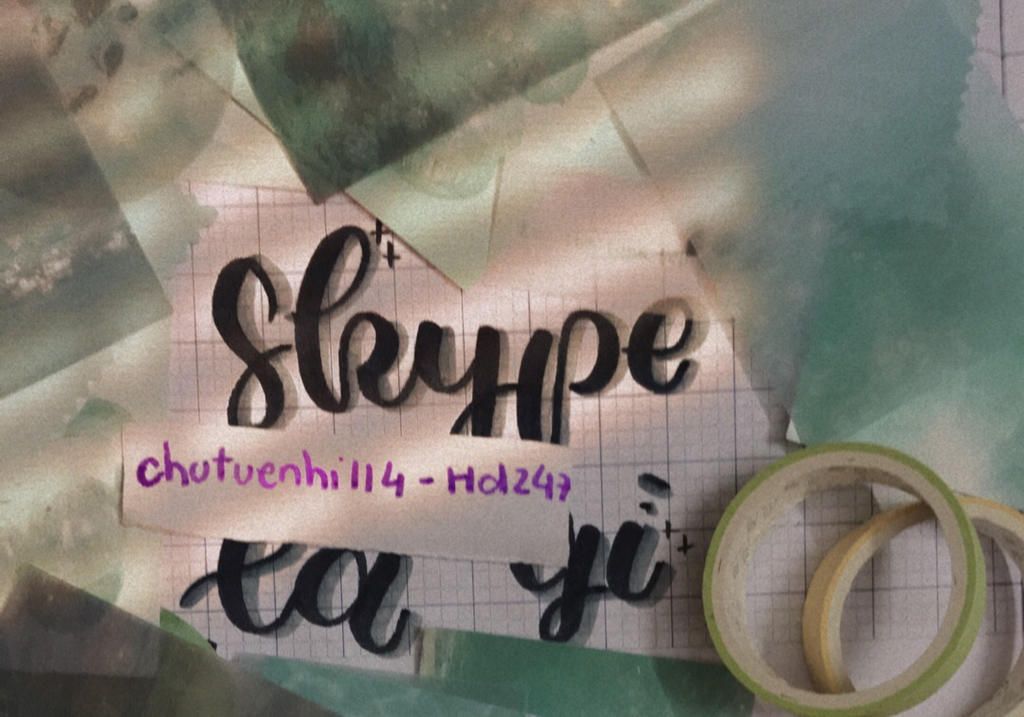 Skype
chutuenhi114 - Hd247
là gì